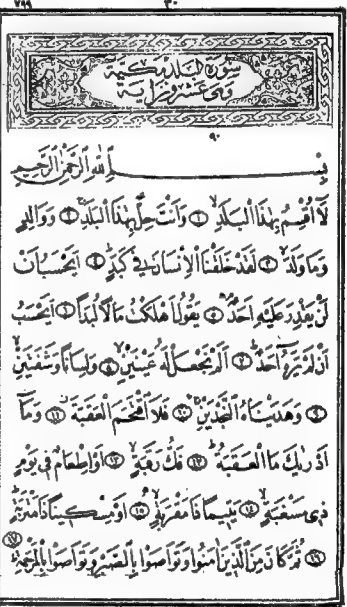 ٣٠ ٧٩٩
سورة البلد مكية
وهي عشرون آية
٩٠
بِسْمِ اللهِ الرَّحْمٰنِ الرَّحِيمِ
لَا أُقْسِمُ بِهٰذَا الْبَلَدِ ١ وَأَنْتَ حِلٌّ بِهٰذَا الْبَلَدِ ٢ وَوَالِدٍ
وَمَا وَلَدَ ٣ لَقَدْ خَلَقْنَا الْإِنْسَانَ فِي كَبَدٍ ٤ أَيَحْسَبُ أَنْ
لَنْ يَقْدِرَ عَلَيْهِ أَحَدٌ ٥ يَقُولُ أَهْلَكْتُ مَالًا لُبَدًا ٦ أَيَحْسَبُ
أَنْ لَمْ يَرَهُ أَحَدٌ ٧ أَلَمْ نَجْعَلْ لَهُ عَيْنَيْنِ ٨ وَلِسَانًا وَشَفَتَيْنِ
٩ وَهَدَيْنَاهُ النَّجْدَيْنِ ١٠ فَلَا اقْتَحَمَ الْعَقَبَةَ ١١ وَمَا
أَدْرٰيكَ مَا الْعَقَبَةُ ١٢ فَكُّ رَقَبَةٍ ١٣ أَوْ إِطْعَامٌ فِي يَوْمٍ
ذِي مَسْغَبَةٍ ١٤ يَتِيمًا ذَا مَقْرَبَةٍ ١٥ أَوْ مِسْكِينًا ذَا مَتْرَبَةٍ
١٦ ثُمَّ كَانَ مِنَ الَّذِينَ اٰمَنُوا وَتَوَاصَوْا بِالصَّبْرِ وَتَوَاصَوْا بِالْمَرْحَمَةِ ١٧